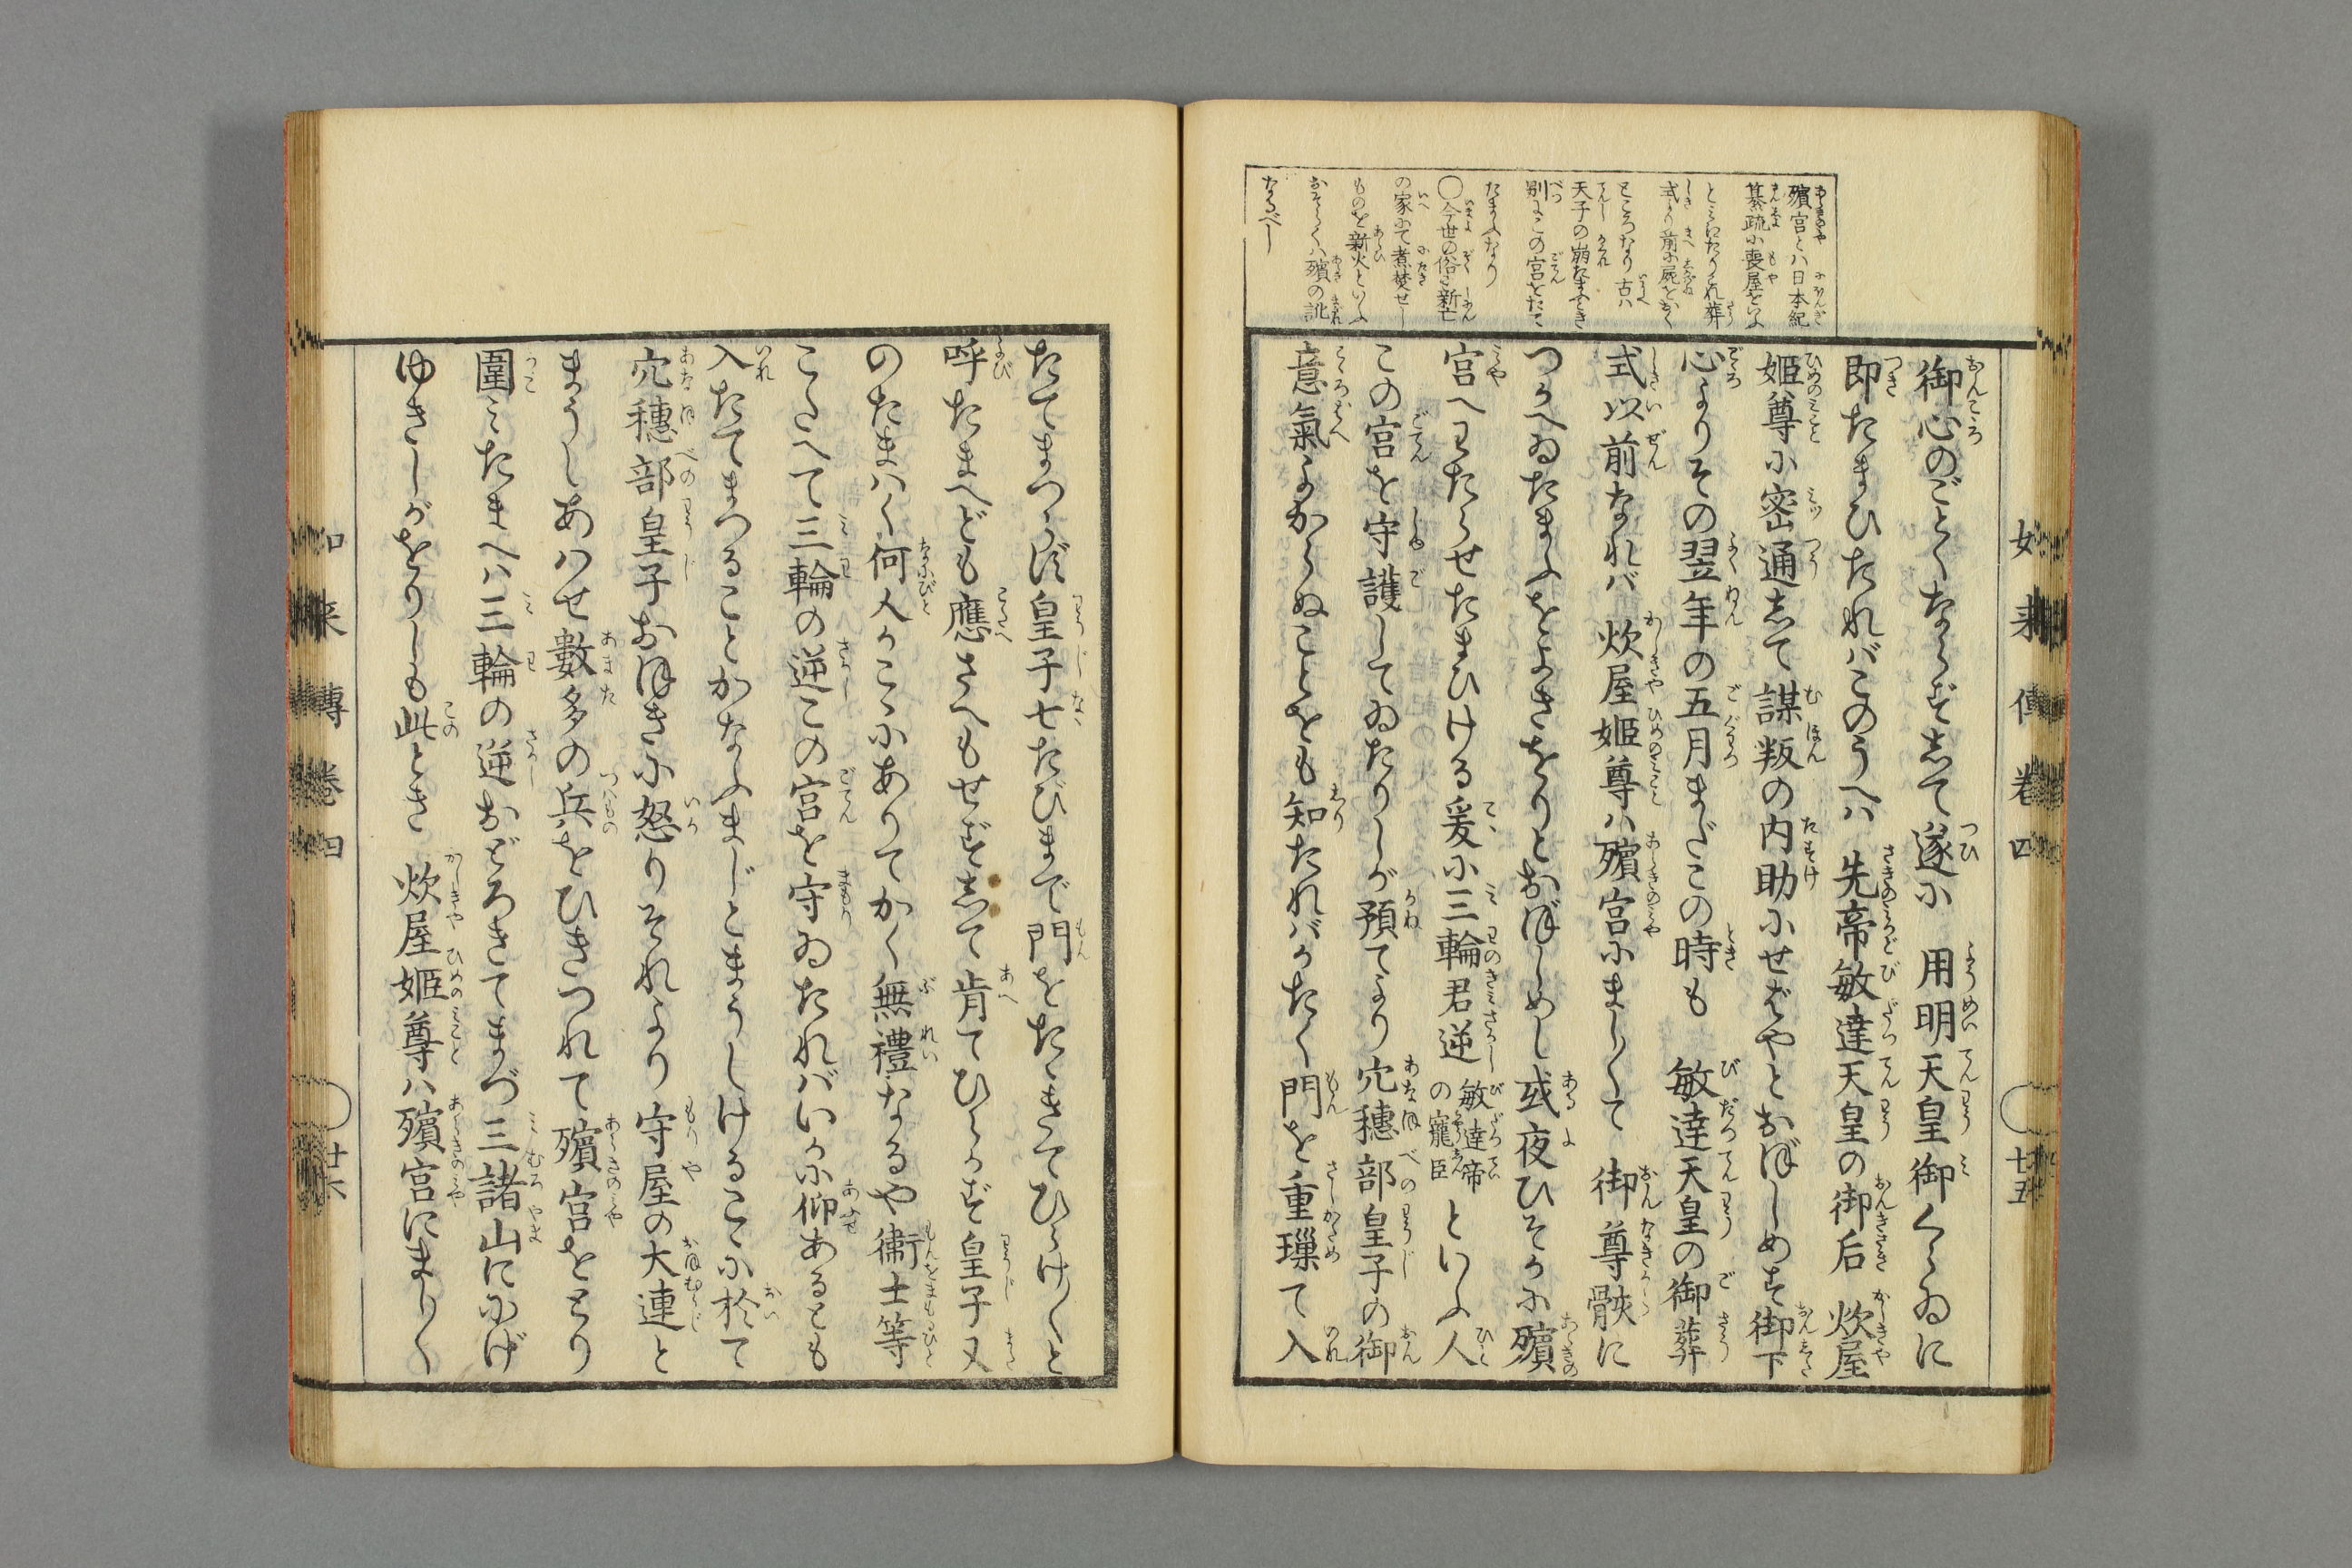 殯宮とハ日本紀
纂疏に喪屋をいふ
と見えたりこれ葬
式より前に屍をおく
ところなり古ハ
天子の崩たまふとき
別にこの宮をたて
たまふなり
〇今世の俗に新亡
の家にて煮焚せし
ものを新火といふ
おそらくハ殯の訛
なるべし
如来傳巻四
廿五
御心のごとくならずして遂に 用明天皇御くらゐに
即たまひたれバこのうへハ 先帝敏達天皇の御后 炊屋
姫尊に密通して謀叛の内助にせばやとおぼしめす御下
心よりその翌年の五月まだこの時も 敏達天皇の御葬
式以前なれバ 炊屋姫尊ハ殯宮にまし〳〵て 御尊骸に
つかへゐたまふをよきをりとおぼしめし或夜ひそかに殯
宮へわたらせたまひける爰に三輪君逆敏達帝の寵臣といふ人
この宮を守護してゐたりしが預てより穴穂部皇子の御
意氣よからぬことをも知たれバかたく門を重璅て入
たてまつらず皇子七たびまで門をたゝきてひらけ〳〵と
呼たまへども應さへもせずして肯てひらかず皇子又
のたまハく何人かこゝにありてかく無禮なるや衛士等
こたへて三輪の逆この宮を守ゐたれバいかに仰あるとも
入たてまつることかなふまじとまうしけるこゝに於て
穴穂部皇子おほきに怒りそれより守屋の大連と
まうしあハせ數多の兵をひきつれて殯宮をとり
圍みたまへハ三輪の逆おどろきてまづ三諸山ににげ
ゆきしがをりしも此とき 炊屋姫尊ハ殯宮にまし〳〵
如来傳巻四
廿六